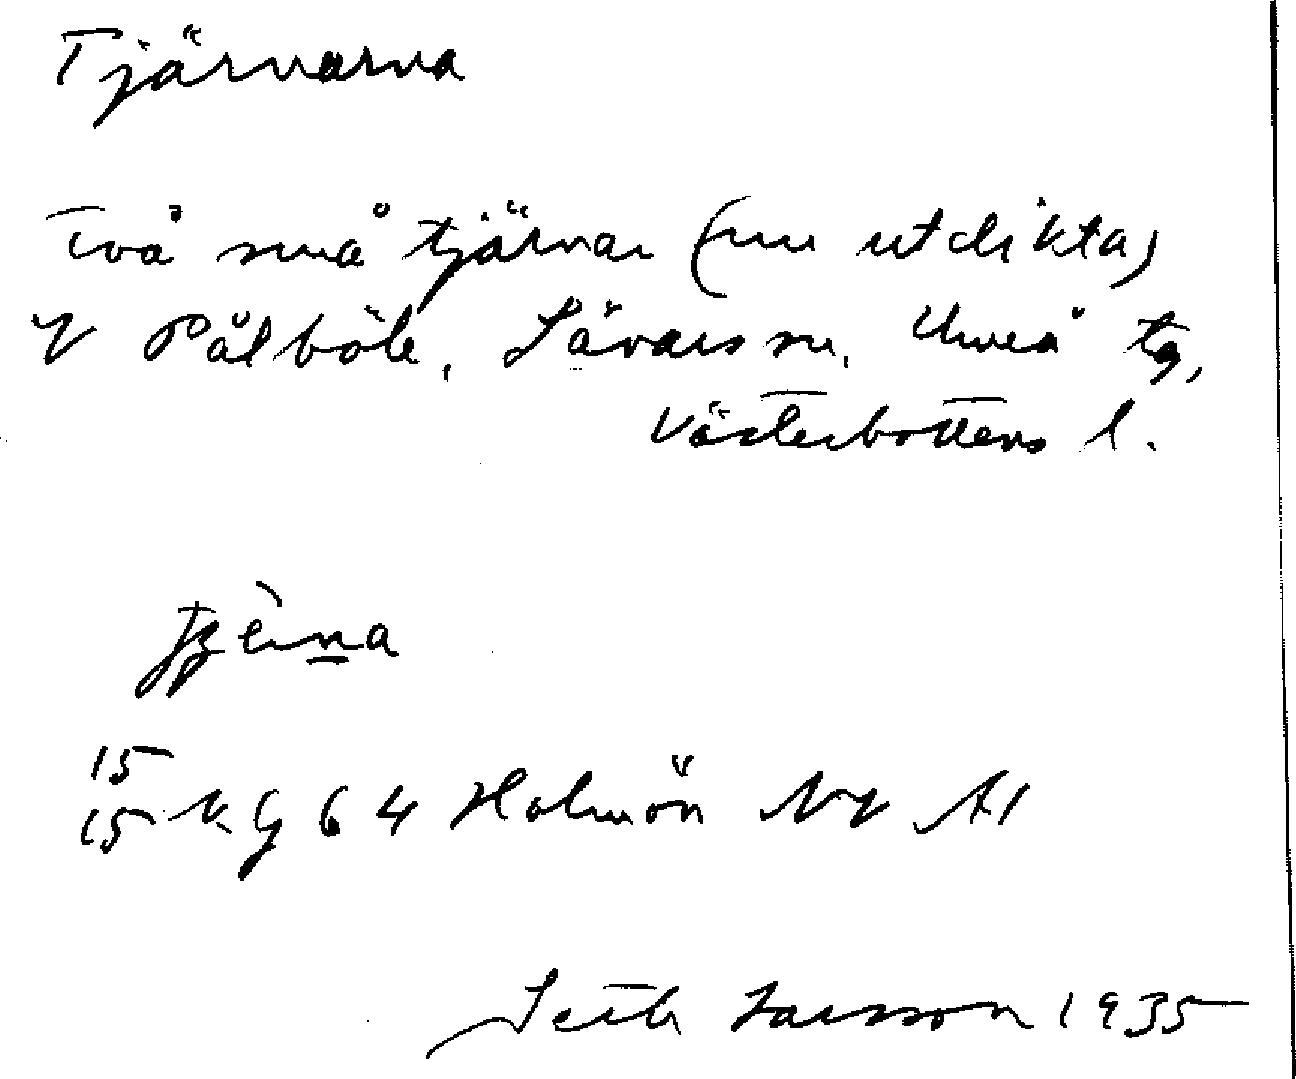 Tjärnarna
Två små tjärnar (nu utdikta)
V Pålböle, Sävars sn, Umeå tg,
Västerbottens l.
15
15 v. G 64 Holmön NV A1
Seth Larsson 1935